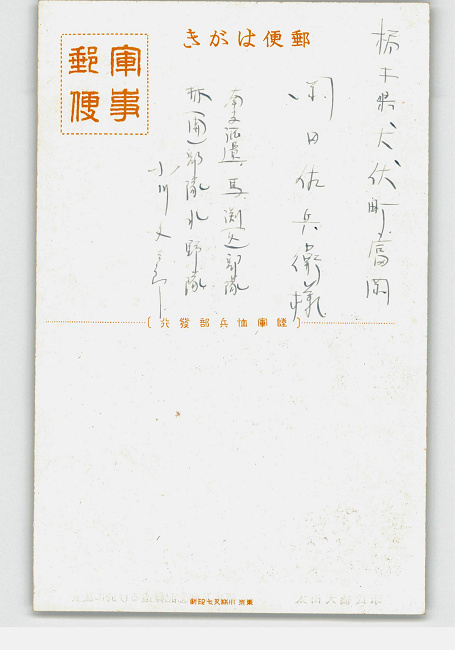 郵便はがき
軍事
郵便
栃木県犬伏町富岡
前田佐兵衛様
南支派遣馬渕支部隊
林(国)部隊水野隊
小川
(陸軍恤兵部發行)